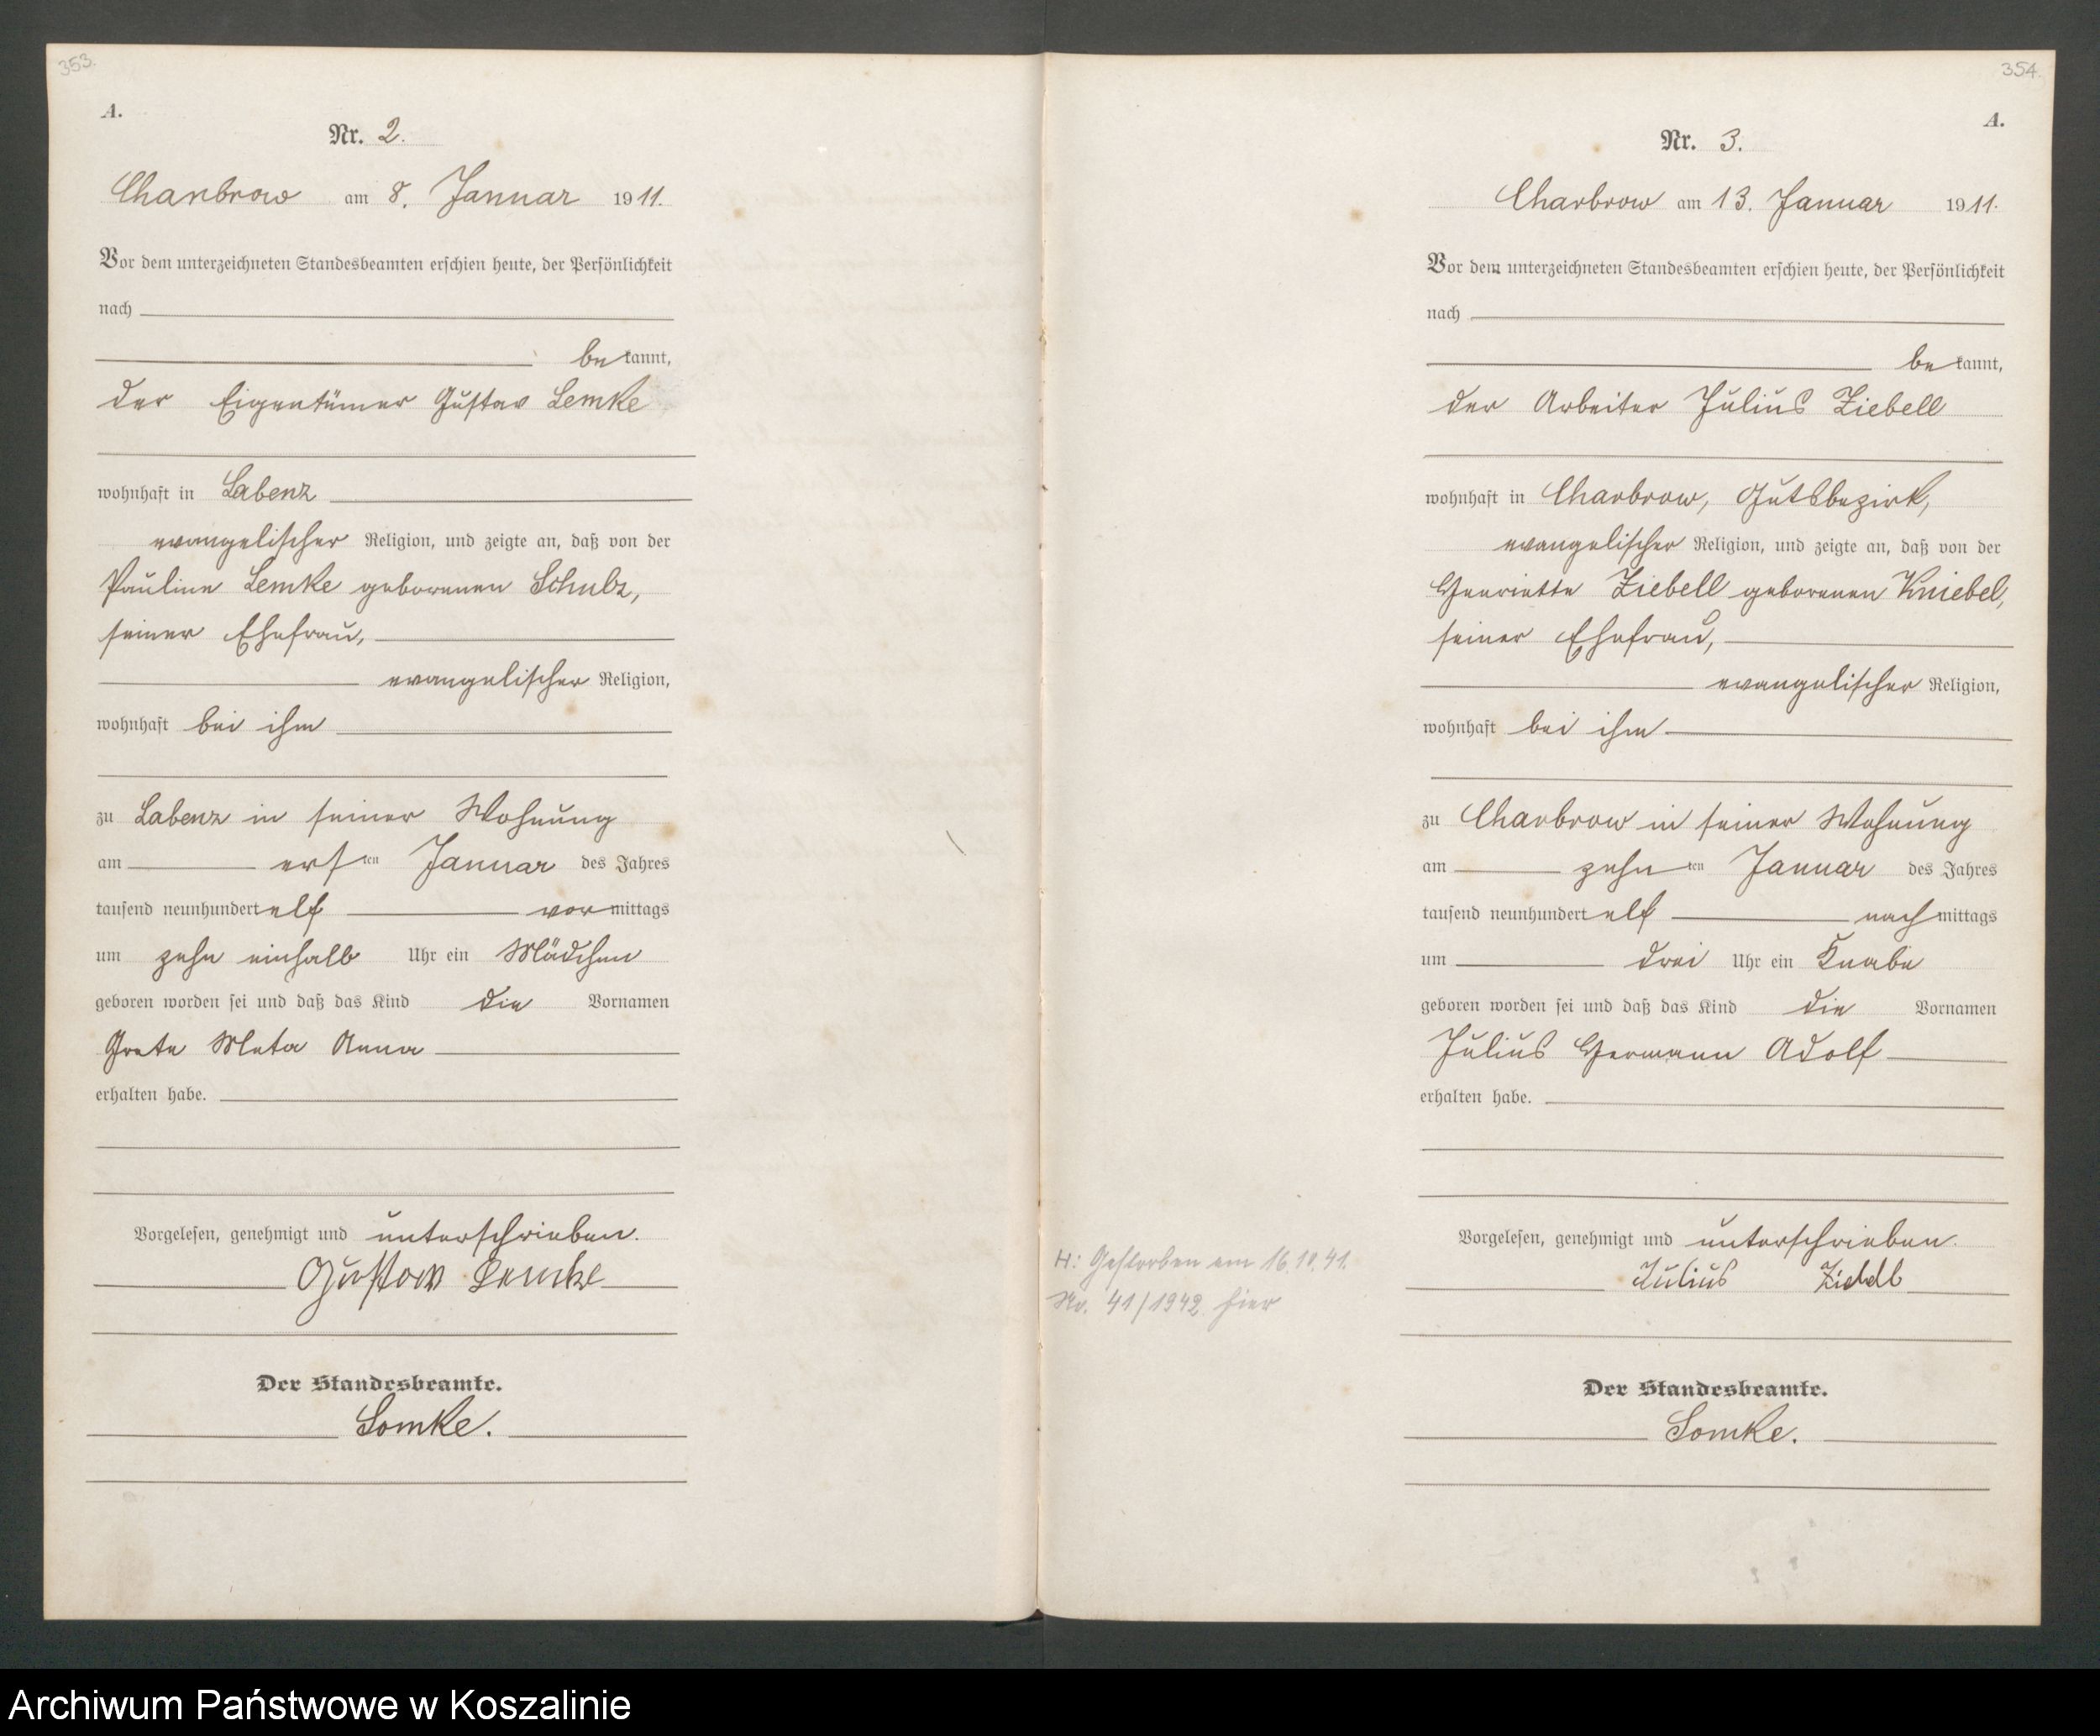 353.
A.
Nr. 2.
Charbrow am 8. Januar 1911.
Vor dem unterzeichneten Standesbeamten erschien heute, der Persönlichkeit
nach
bekannt,
der Eigentümer Gustav Lemke
wohnhaft in Labenz
evangelischer Religion, und zeigte an, daß von der
Pauline Lemke geborenen Schulz,
seiner Ehefrau,
evangelischer Religion,
wohnhaft bei ihm
zu Labenz in seiner Wohnung
am ersten Januar des Jahres
tausend neunhundert elf vormittags
um zehn einhalb Uhr ein Mädchen
geboren worden sei und daß das Kind die Vornamen
Grete Meta Anna
erhalten habe.
Vorgelesen, genehmigt und unterschrieben.
Gustav Lemke
Der Standesbeamte.
Somke.
354.
A.
Nr. 3.
Charbrow am 13. Januar 1911.
Vor dem unterzeichneten Standesbeamten erschien heute, der Persönlichkeit
nach
bekannt,
der Arbeiter Julius Ziebell
wohnhaft in Charbrow, Gutsbezirk,
evangelischer Religion, und zeigte an, daß von der
Henriette Ziebell geborenen Kniebel,
seiner Ehefrau,
evangelischer Religion,
wohnhaft bei ihm
zu Charbrow in seiner Wohnung
am zehnten Januar des Jahres
tausend neunhundert elf nachmittags
um drei Uhr ein Knabe
geboren worden sei und daß das Kind die Vornamen
Julius Hermann Adolf
erhalten habe.
Vorgelesen, genehmigt und unterschrieben.
Julius Ziebell
H: Gestorben am 16.10.41.
Nr. 41/1942 hier
Der Standesbeamte.
Somke.
Archiwum Państwowe w Koszalinie